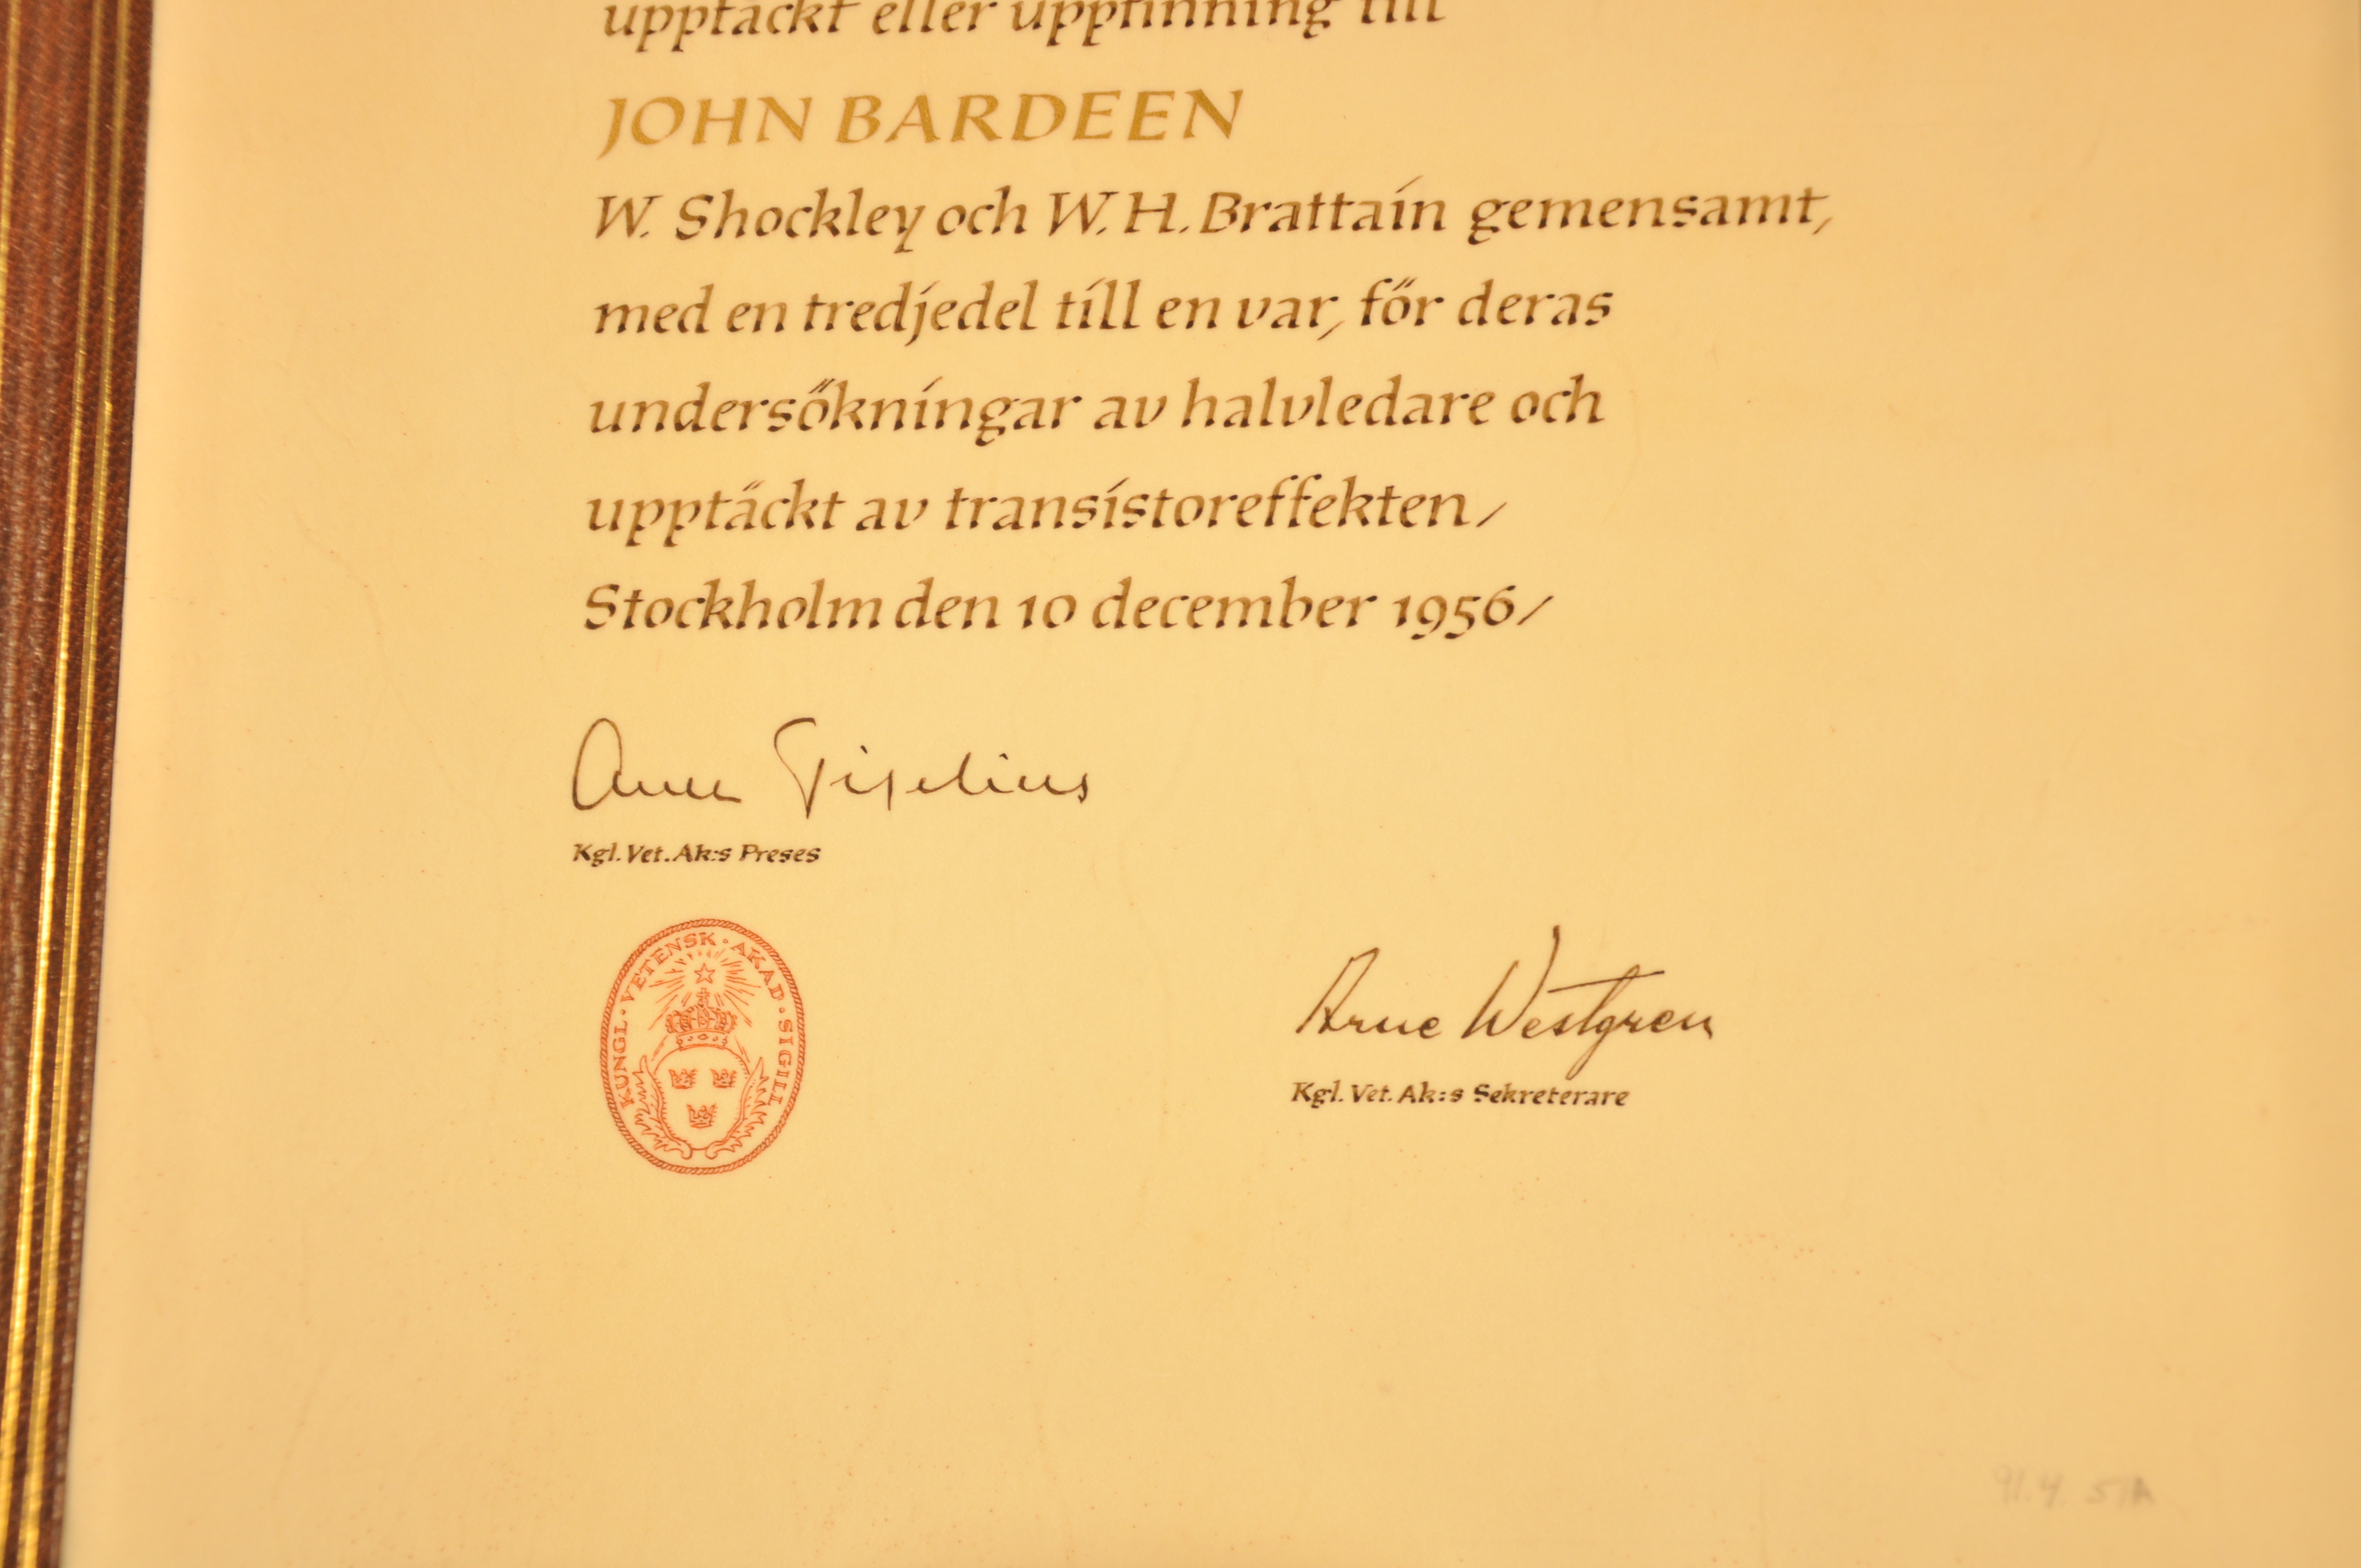 upptäckt eller uppfinning till
JOHN BARDEEN
W. Shockley och W. H. Brattain gemensamt,
med en tredjedel till en var, för deras
undersökningar av halvledare och
upptäckt av transistoreffekten/
Stockholm den 10 december 1956/
Arne Tiselius
Kgl. Vet. Ak:s Preses
KUNGL · VETENSK · AKAD · SIGILL
Arne Westgren
Kgl. Vet. Ak:s Sekreterare
91.4